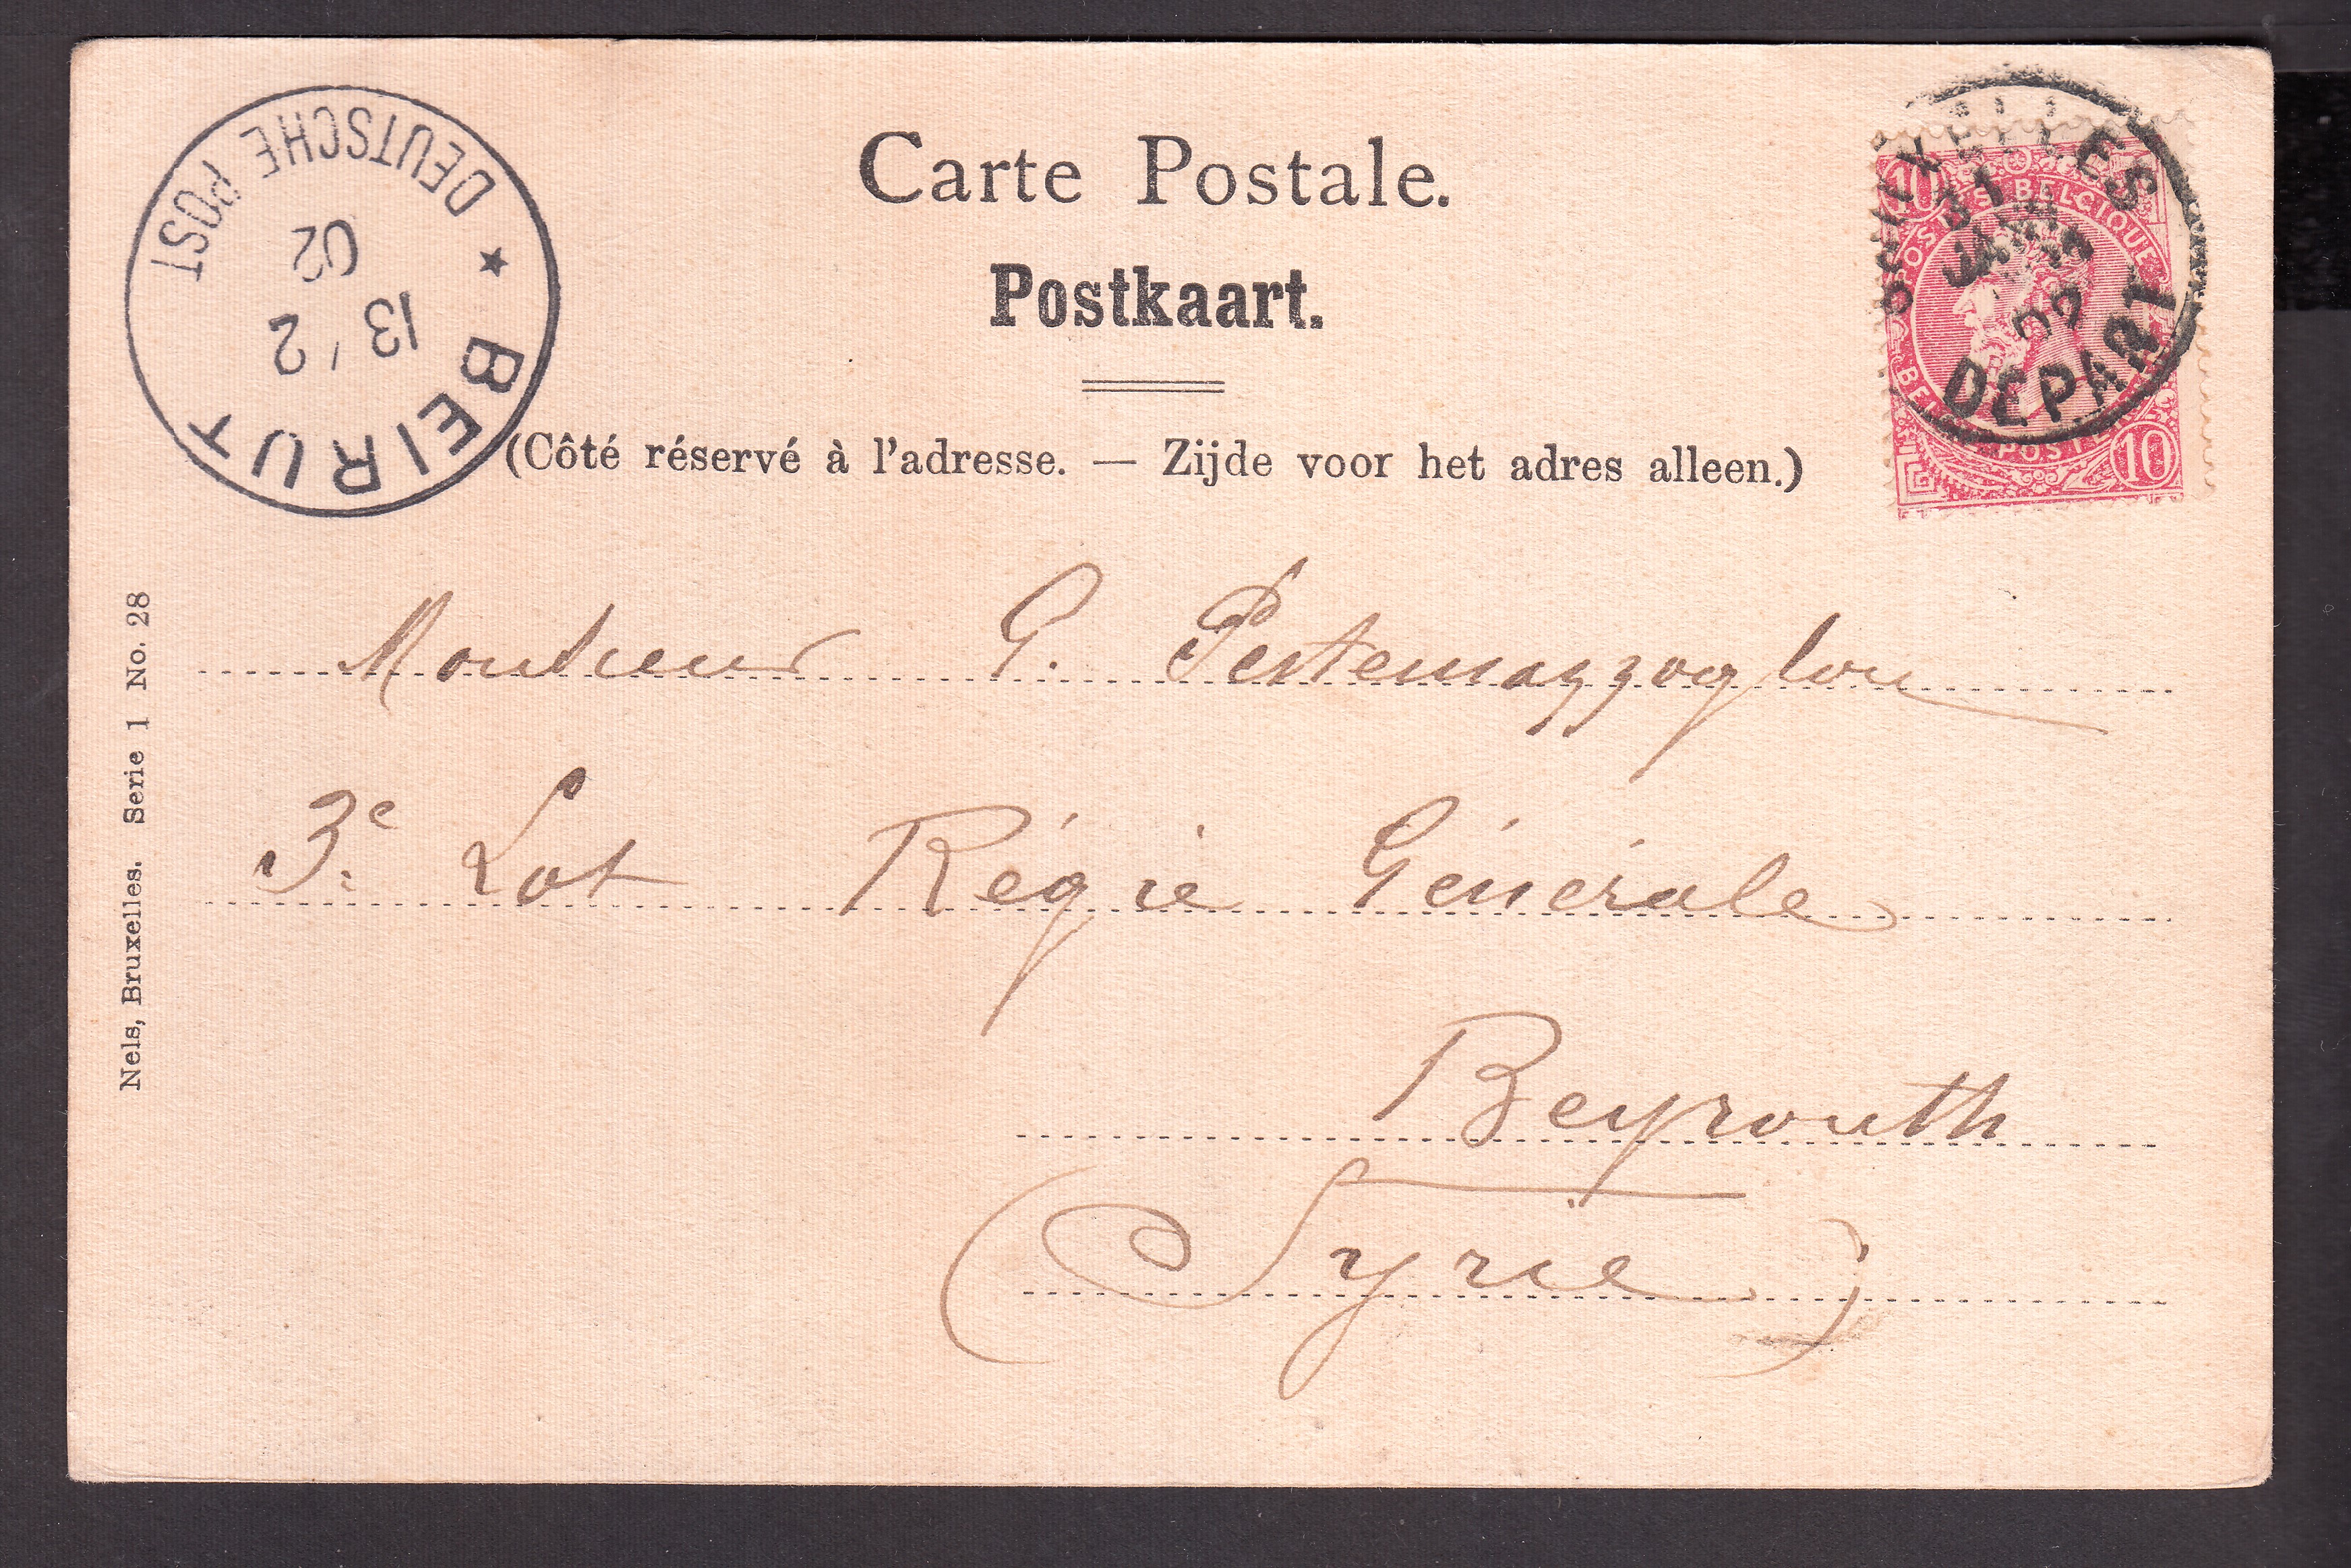 Carte Postale.
Postkaart.
(Côté réservé à l'adresse. — Zijde voor het adres alleen.)
BEIRUT
13/2
02
★ DEUTSCHE POST
BRUXELLES
31
JANV
02
DEPART
10 POSTES BELGIQUE
BELG POST 10
Monsieur G. Pestemazzoglou
3e Lot Régie Générale
Beyrouth
(Syrie)
Nels, Bruxelles. Serie 1 No. 28